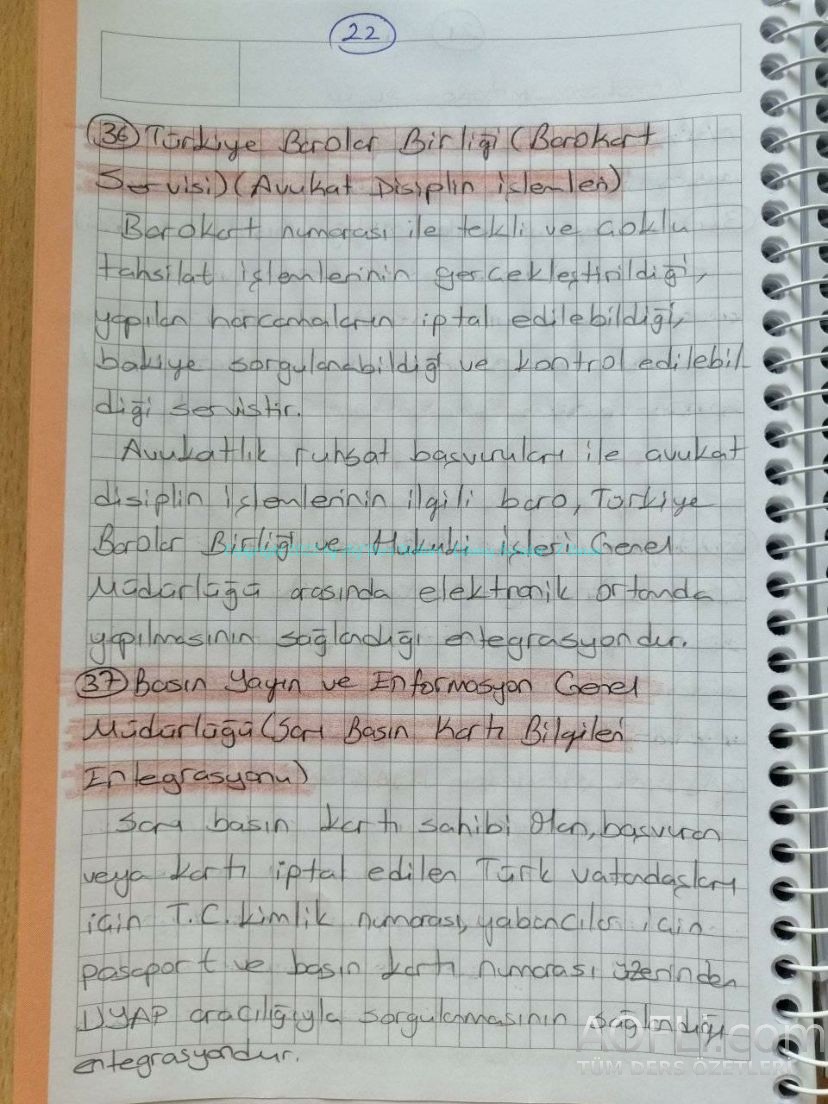 22
36) Türkiye Barolar Birliği (Barokart
Servisi) (Avukat Disiplin işlemleri)
Barokart numarası ile tekli ve çoklu
tahsilat işlemlerinin gerçekleştirildiği,
yapılan harcamaların iptal edilebildiği,
bakiye sorgulanabildiği ve kontrol edilebil
diği servistir.
Avukatlık ruhsat başvuruları ile avukat
disiplin işlemlerinin ilgili baro, Türkiye
Barolar Birliği ve Hukuki işleri Genel
Müdürlüğü arasında elektronik ortamda
yapılmasının sağlandığı entegrasyondur.
37) Basın Yayın ve Enformasyon Genel
Müdürlüğü (Sarı Basın Kartı Bilgileri
Entegrasyonu)
Sarı basın kartı sahibi olan, başvuran
veya kartı iptal edilen Türk vatandaşları
için T.C. kimlik numarası, yabancılar için
pasaport ve basın kartı numarası üzerinden
UYAP aracılığıyla sorgulamasının sağlandığı
entegrasyondur.
AOFLY.com
TÜM DERS ÖZETLERİ